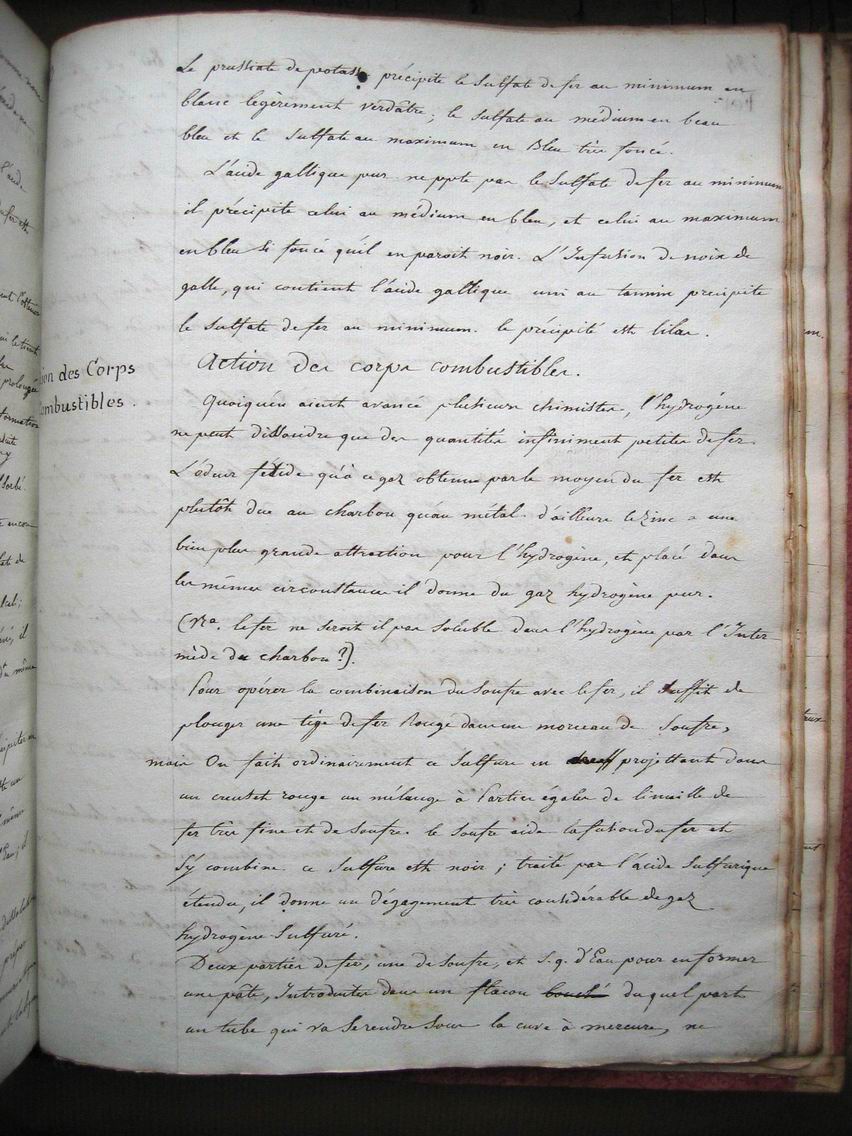 Le prussiate de potasse précipite le sulfate de fer au minimum en
blanc légèrement verdâtre; le sulfate au médium en beau
bleu et le sulfate au maximum en Bleu très foncé.
L'acide gallique pur ne ppte pas le sulfate de fer au minimum
il précipite celui au médium en bleu, et celui au maximum
en bleu si foncé qu'il en paroit noir. L'Infusion de noix de
galle, qui contient l'acide gallique uni au tannin précipite
le sulfate de fer au minimum. le précipité est lilas.
Action des corps combustibles.
Corps
ombustibles.
Quoiqu'en aient avancé plusieurs chimistes, l'hydrogène
ne peut dissoudre que des quantités infiniment petites de fer.
L'odeur fétide qu'a ce gaz obtenu par le moyen du fer est
plutôt due au charbon qu'au métal. d'ailleurs le zinc a une
bien plus grande attraction pour l'hydrogène, et placé dans
les mêmes circonstances il donne du gaz hydrogène pur.
(Na. le fer ne seroit il pas soluble dans l'hydrogène par l'Inter
mède du charbon?).
Pour opérer la combinaison du soufre avec le fer, il suffit de
plonger une tige de fer Rouge dans un morceau de Soufre,
mais On fait ordinairement ce sulfure en projettant dans
un creuset rouge un mélange à Parties égales de limaille de
fer très fine et de soufre. le soufre aide la fusion du fer et
s'y combine. ce sulfure est noir; traité par l'acide sulfurique
étendu, il donne un dégagement très considérable de gaz
hydrogène sulfuré.
Deux parties de fer, une de soufre, et S.q. d'Eau pour en former
une pâte, Introduites dans un flacon bouché duquel part
un tube qui va se rendre sous la cuve à mercure, ne